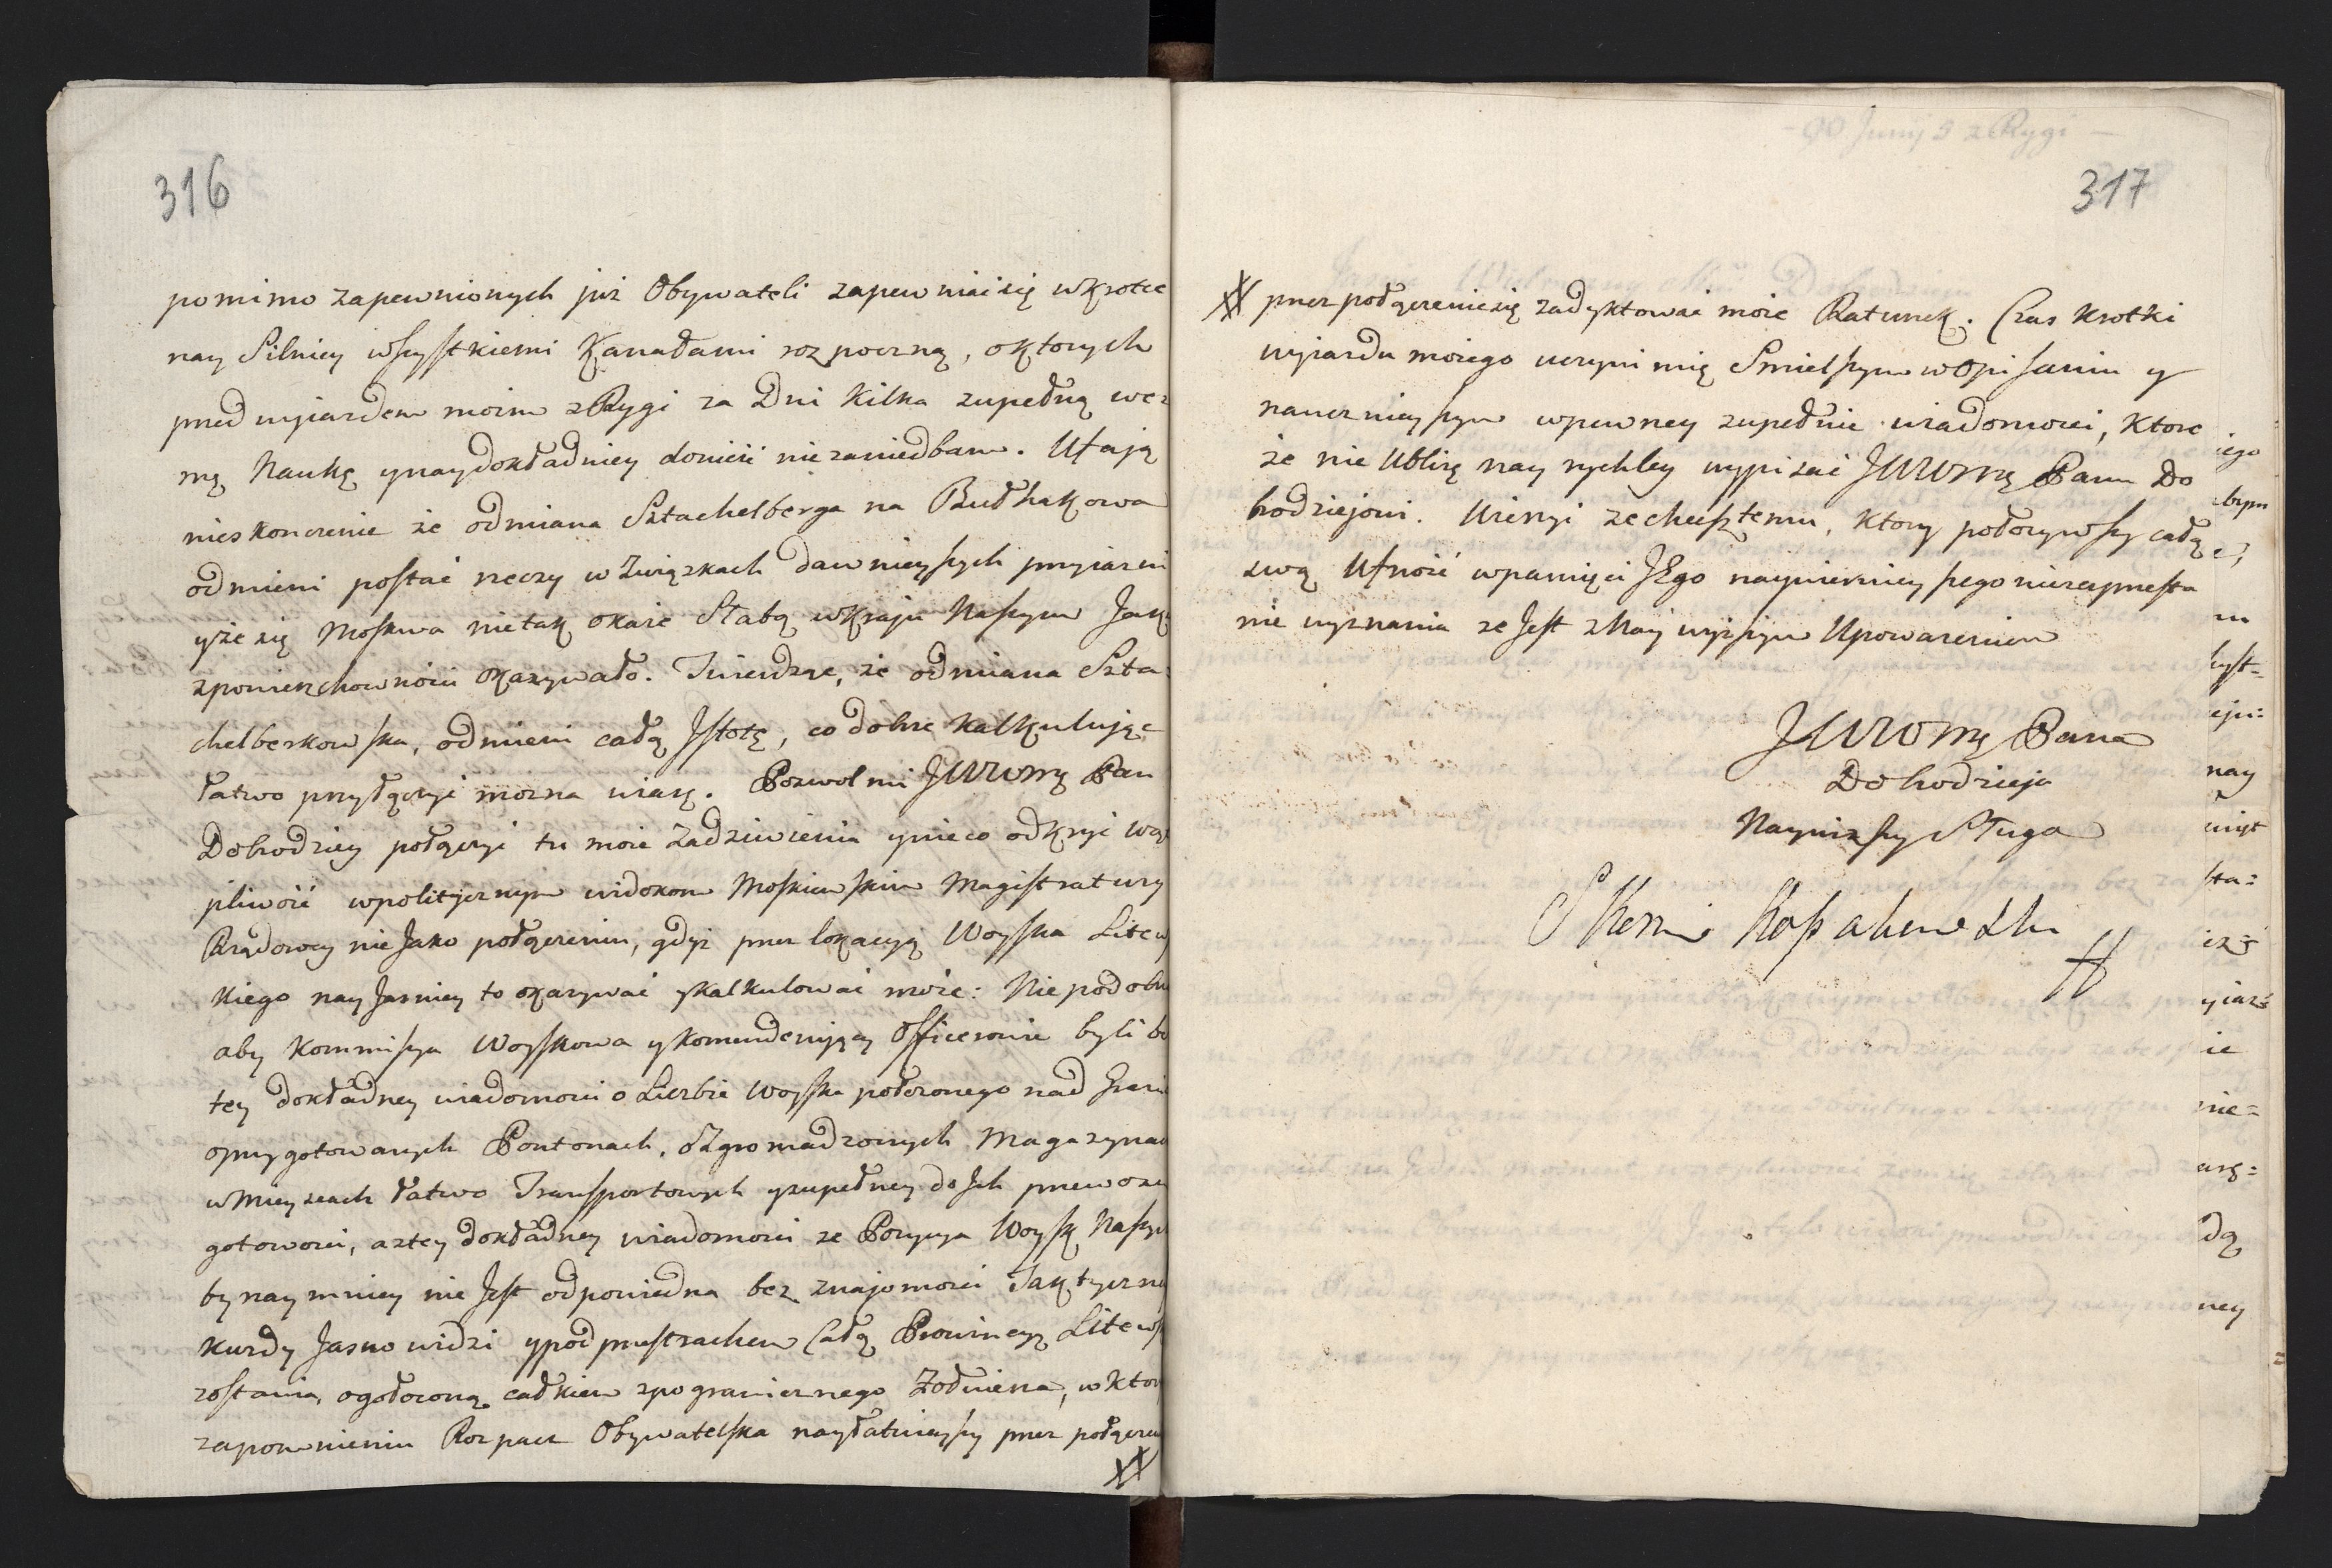 316
pomimo zapewnionych już Obywateli zapewniaisię wkrotce
nay Silniey wszystkiemi Kanałami rozpoczną, oktorych
przed wyiazdem moim z Rygi za Dni kilka zupełną wez
mę Naukę ynaydokładniey donieść niezaniedbam. Ufają
nieskończenie że odmiana Sztachelberga na Bułhakowa
odmieni postać rzeczy w Związkach dawnieyszych przyiaźni
yże się Moskwa nietak okaże Słabą wkraju Naszym Jak
zpowierzchowności okazywało. Twierdząc, że odmiana Szta
chelberkowska, odmieni całą Jstotę, co dobrze kalkulując
łatwo przyłączyć można wiarę. Pozwol mi JWWmę Pan
Dobrodziey połączyć tu moie Zadziwienia ynieco odkryć wąt
pliwość wpolitycznym widokom Moskiewskim Magistratury
Rządowey nieJako połączeniu, gdyż przez lokacyją Woyska Litew
kiego nay Jasniey to okazywać yskalkulować może: Niepodobn
aby Kommissya Woyskowa ykomenderujący Officerowie byli bez
tey dokładney wiadomości o Liczbie Woyska położonego nad Grani
oprzygotowanych Pontonach, oZgromadzonych Magazynach
w Mieyscach łatwo Transportowych yzupełney do Jch przewozu
gotowości, aztey dokładney wiadomości że Pozycya Woysk Naszych
bynaymniey nie Jest odpowiedna bez znajomości Taktyczney
kazdy Jasno widzi ypod przestrachem Całą Prowincyą Litewsk
zostawia, ogołoconą całkiem zpogranicznego Żołnierza, wktor
zapewnieniu Rozpacz Obywatelska nayłatwieyszy przez połączen
XX
317
XX przez połączeniesię zadyktować może Ratunek. Czas krotki
wyiazdu moiego uczyni mię Smielszym wOpisaniu y
naucznieyszym wpewney zupełnie wiadomości, ktore
że nie Ubliżę nay rychley wypisać JWWmę Panu Do
brodziejowi. Wierzyć zechcesz temu, ktory położywszy całą
swą Ufność wpamięci JEgo naywierniey szego nieczaprzesta
nie wyznania że Jest zNay wyższym Upoważeniem
JWWomę Pana
Dobrodzieja
Nayniższy Sługa
iego
ebym
m
syst=
eju:
nay
sta:
ie
nie=
dą
ney